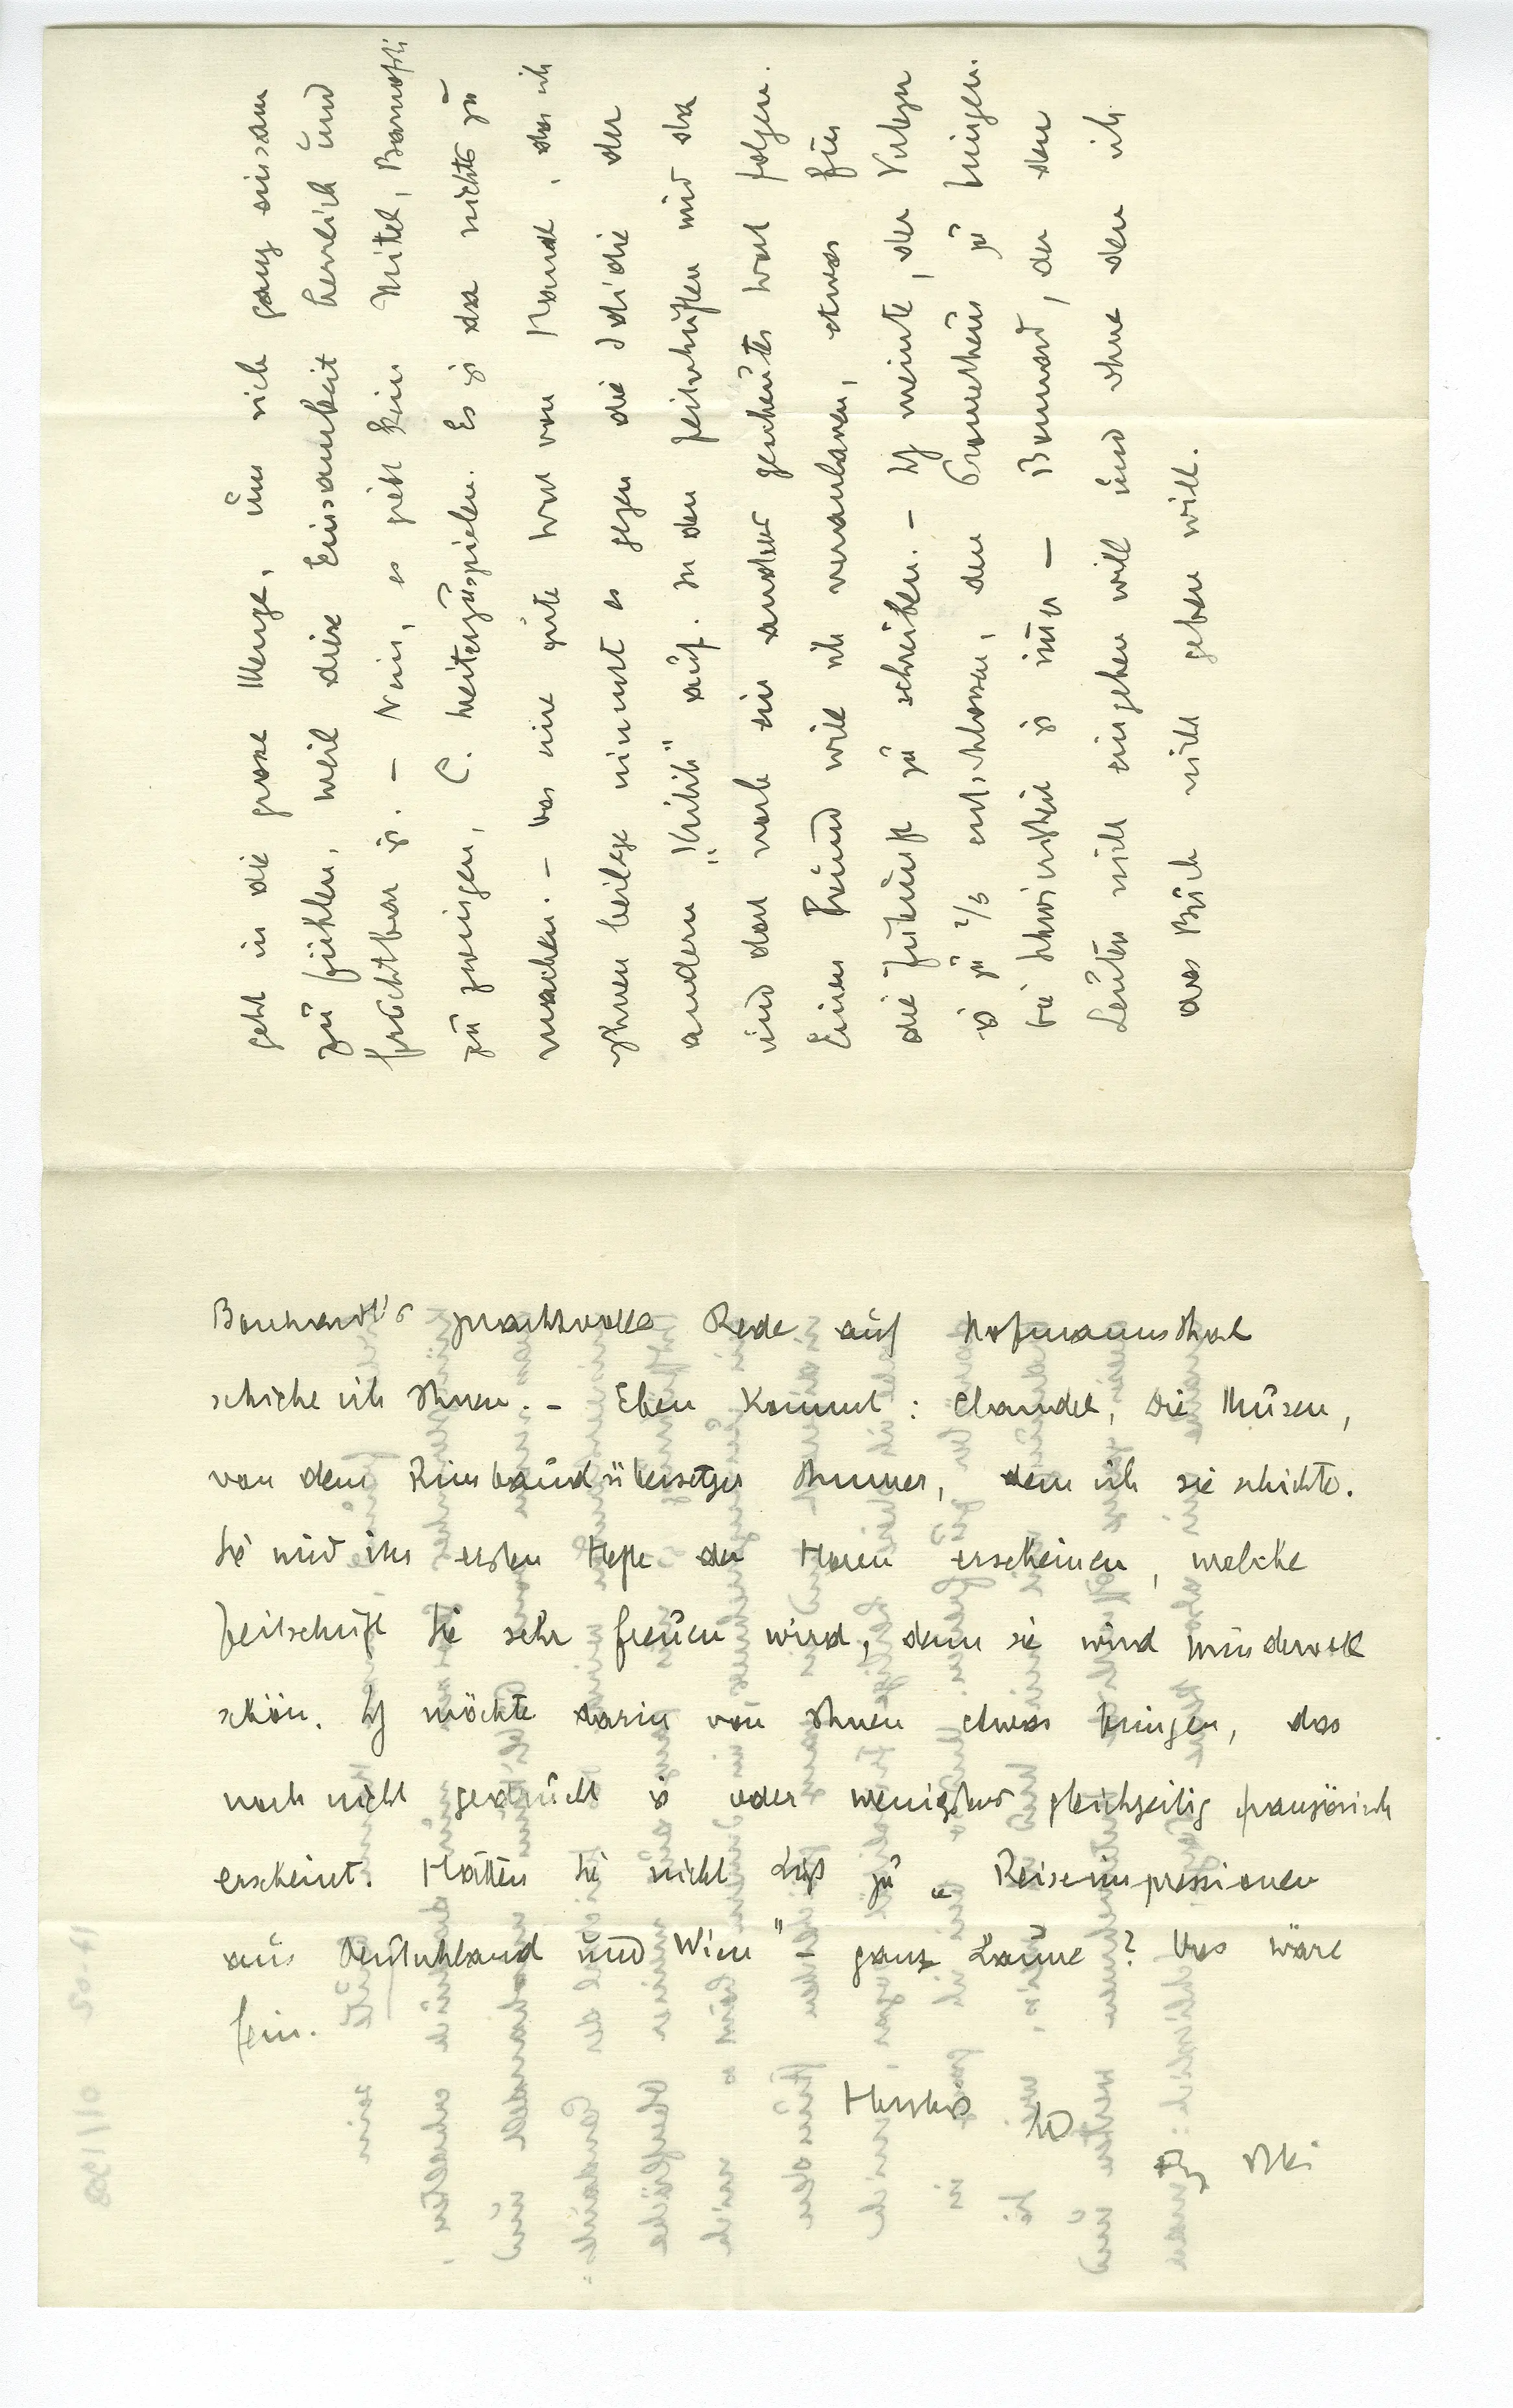 geht in die grosse Menge, um sich ganz einsam
zu fühlen, weil diese Einsamkeit herrlich und
fruchtbar ist. – Nein, es giebt kein Mittel,
zu zwingen, C. weiterzuspielen. Es ist da nichts zu
machen. – Das eine gute Wort von , das ich
Ihnen beilege nimmt es gegen die Idiotie der
andern „Kritik" auf. In den Zeitschriften wird da
und dort noch ein andres gescheutes Wort folgen.
Einen Freund will ich veranlassen, etwas für
die Zukunft zu schreiben. – Ich meinte, der Verleger
ist zu 2/3 entschlossen, den Prometheus zu bringen.
Die Schwierigkeit ist nur – Bonnard, an den
Leuten nicht eingehen will und ohne den ich
das Buch nicht geben will.
Borchardt's prachtvolle Rede auf Hofmannsthal
schicke ich Ihnen. – Eben kommt: Claudel, Die Musen,
von dem Rimbaudübersetzer Ammer, dem ich sie schickte.
Sie wird im ersten Hefte der Horen erscheinen, welche
Zeitschrift Sie sehr freuen wird, denn sie wird wundervoll
schön. Ich möchte darin von Ihnen etwas bringen, das
noch nicht gedruckt ist oder wenigstens gleichzeitig französisch
erscheint. Hätten Sie nicht Lust zu „Reiseimpressionen
aus Deutschland und Wien" – ganz Laune? Das wäre
fein.
Herzlichst
Ihr